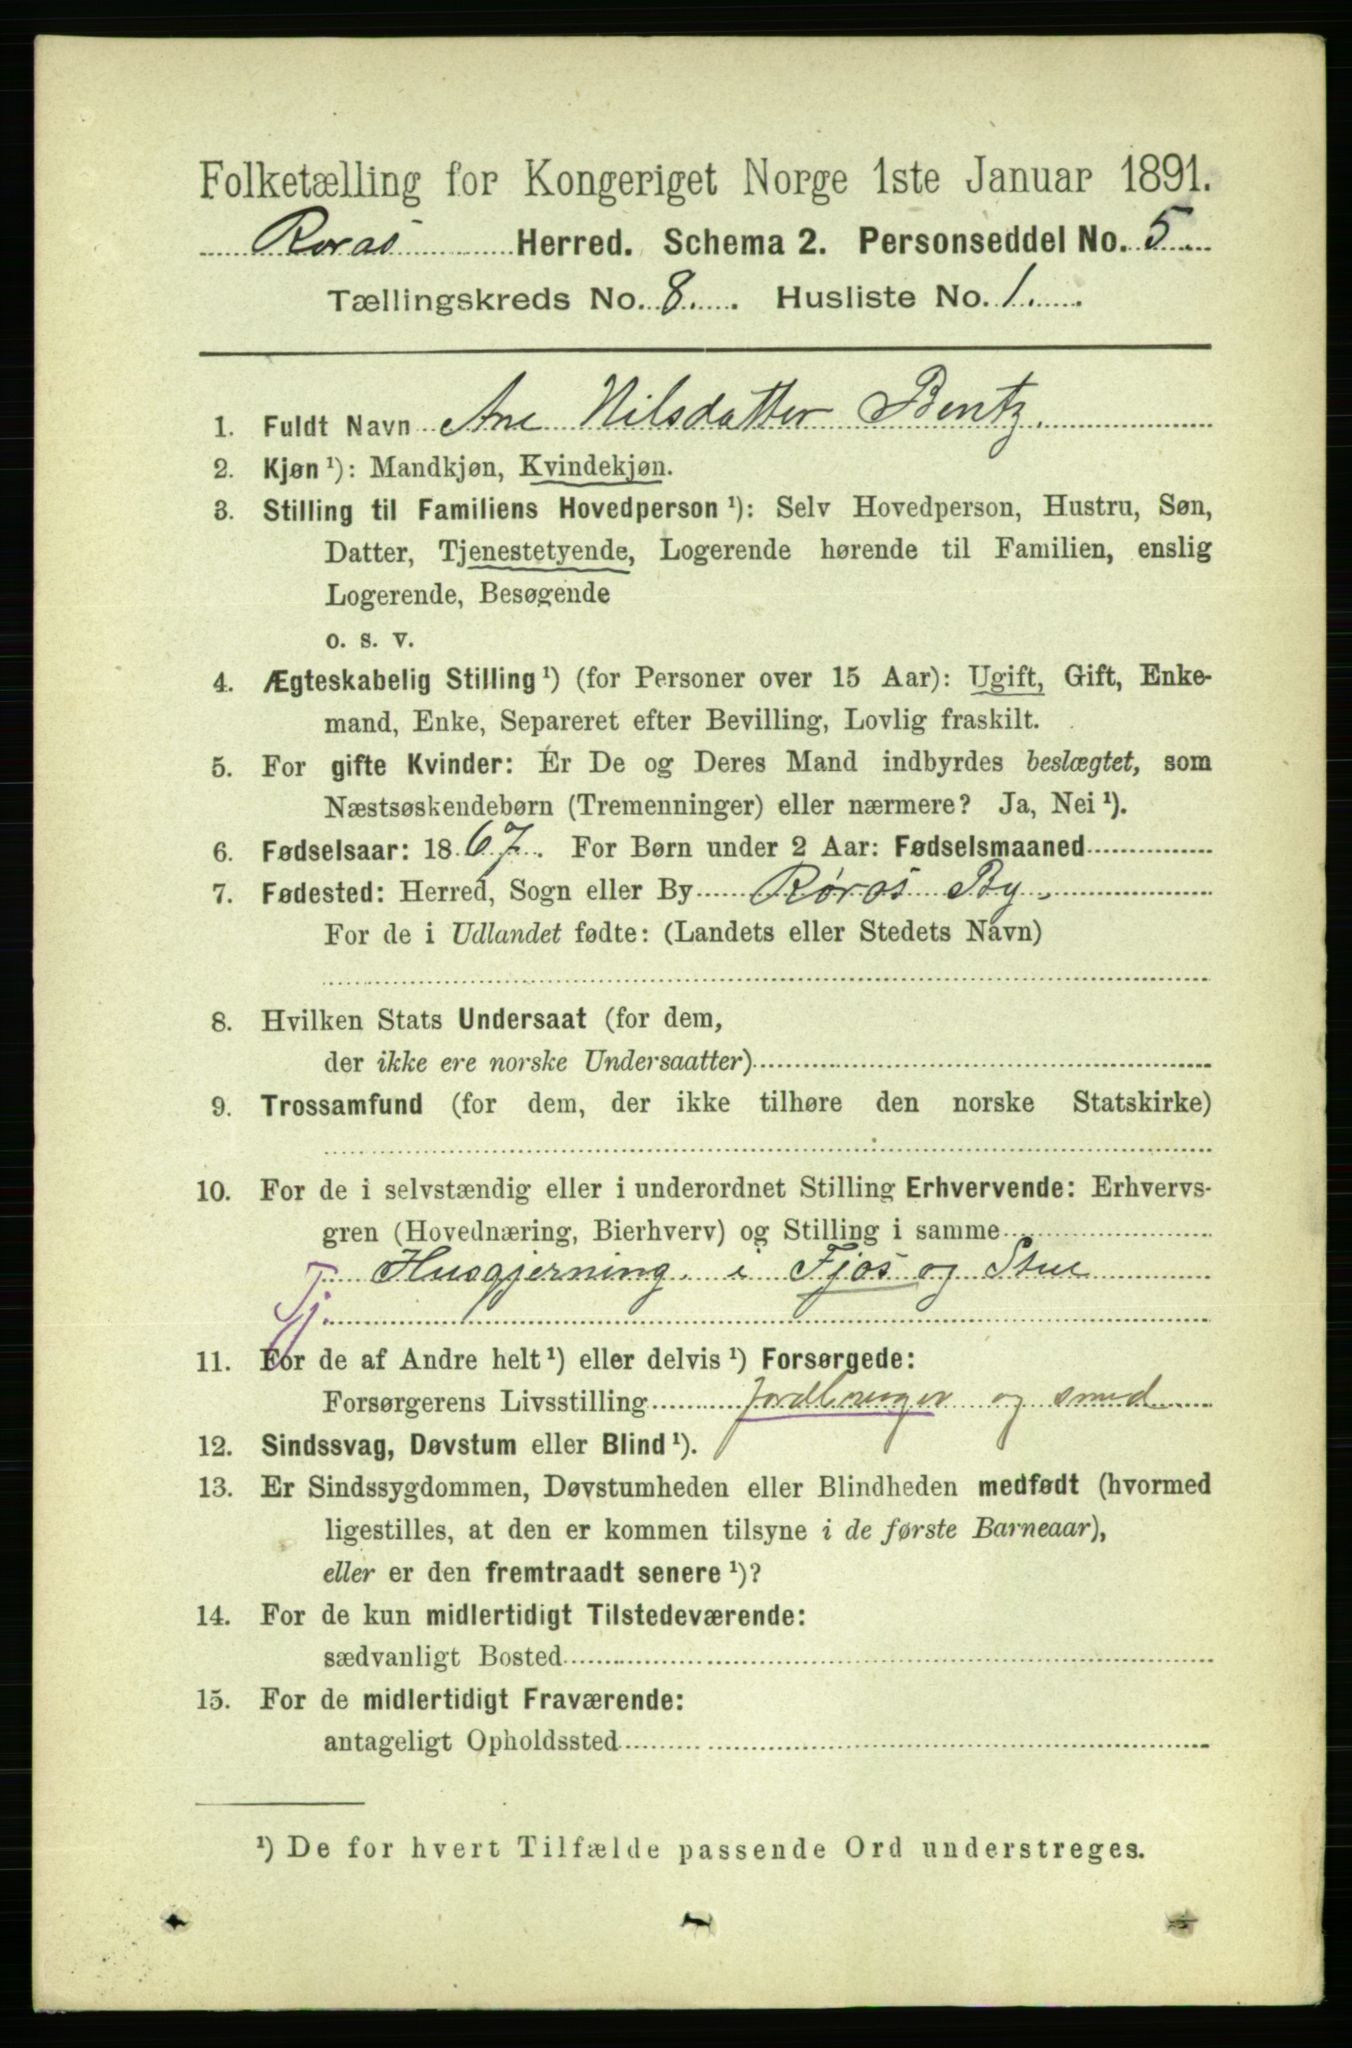 Folketælling for Kongeriget Norge 1ste Januar 1891.
Røraas Herred. Schema 2. Personseddel No. 5
Tællingskreds No. 8. Husliste No. 1.
1. Fuldt Navn Ane Nilsdatter Bentz.
2. Kjøn ¹): Mandkjøn, Kvindekjøn.
3. Stilling til Familiens Hovedperson ¹): Selv Hovedperson, Hustru, Søn,
Datter, Tjenestetyende, Logerende hørende til Familien, enslig
Logerende, Besøgende
o. s. v.
4. Ægteskabelig Stilling ¹) (for Personer over 15 Aar): Ugift, Gift, Enke-
mand, Enke, Separeret efter Bevilling, Lovlig fraskilt.
5. For gifte Kvinder: Er De og Deres Mand indbyrdes beslægtet, som
Næstsøskendebørn (Tremenninger) eller nærmere? Ja, Nei ¹).
6. Fødselsaar: 1867. For Børn under 2 Aar: Fødselsmaaned
7. Fødested: Herred, Sogn eller By Røros By.
For de i Udlandet fødte: (Landets eller Stedets Navn)
8. Hvilken Stats Undersaat (for dem,
der ikke ere norske Undersaatter)
9. Trossamfund (for dem, der ikke tilhøre den norske Statskirke)
10. For de i selvstændig eller i underordnet Stilling Erhvervende: Erhvervs-
gren (Hovednæring, Bierhverv) og Stilling i samme
Husgjerning i Fjøs og Stue
Tj.
11. For de af Andre helt ¹) eller delvis ¹) Forsørgede:
Forsørgerens Livsstilling Jordbruger og smed
12. Sindssvag, Døvstum eller Blind ¹).
13. Er Sindssygdommen, Døvstumheden eller Blindheden medfødt (hvormed
ligestilles, at den er kommen tilsyne i de første Barneaar),
eller er den fremtraadt senere ¹)?
14. For de kun midlertidigt Tilstedeværende:
sædvanligt Bosted
15. For de midlertidigt Fraværende:
antageligt Opholdssted
¹) De for hvert Tilfælde passende Ord understreges.